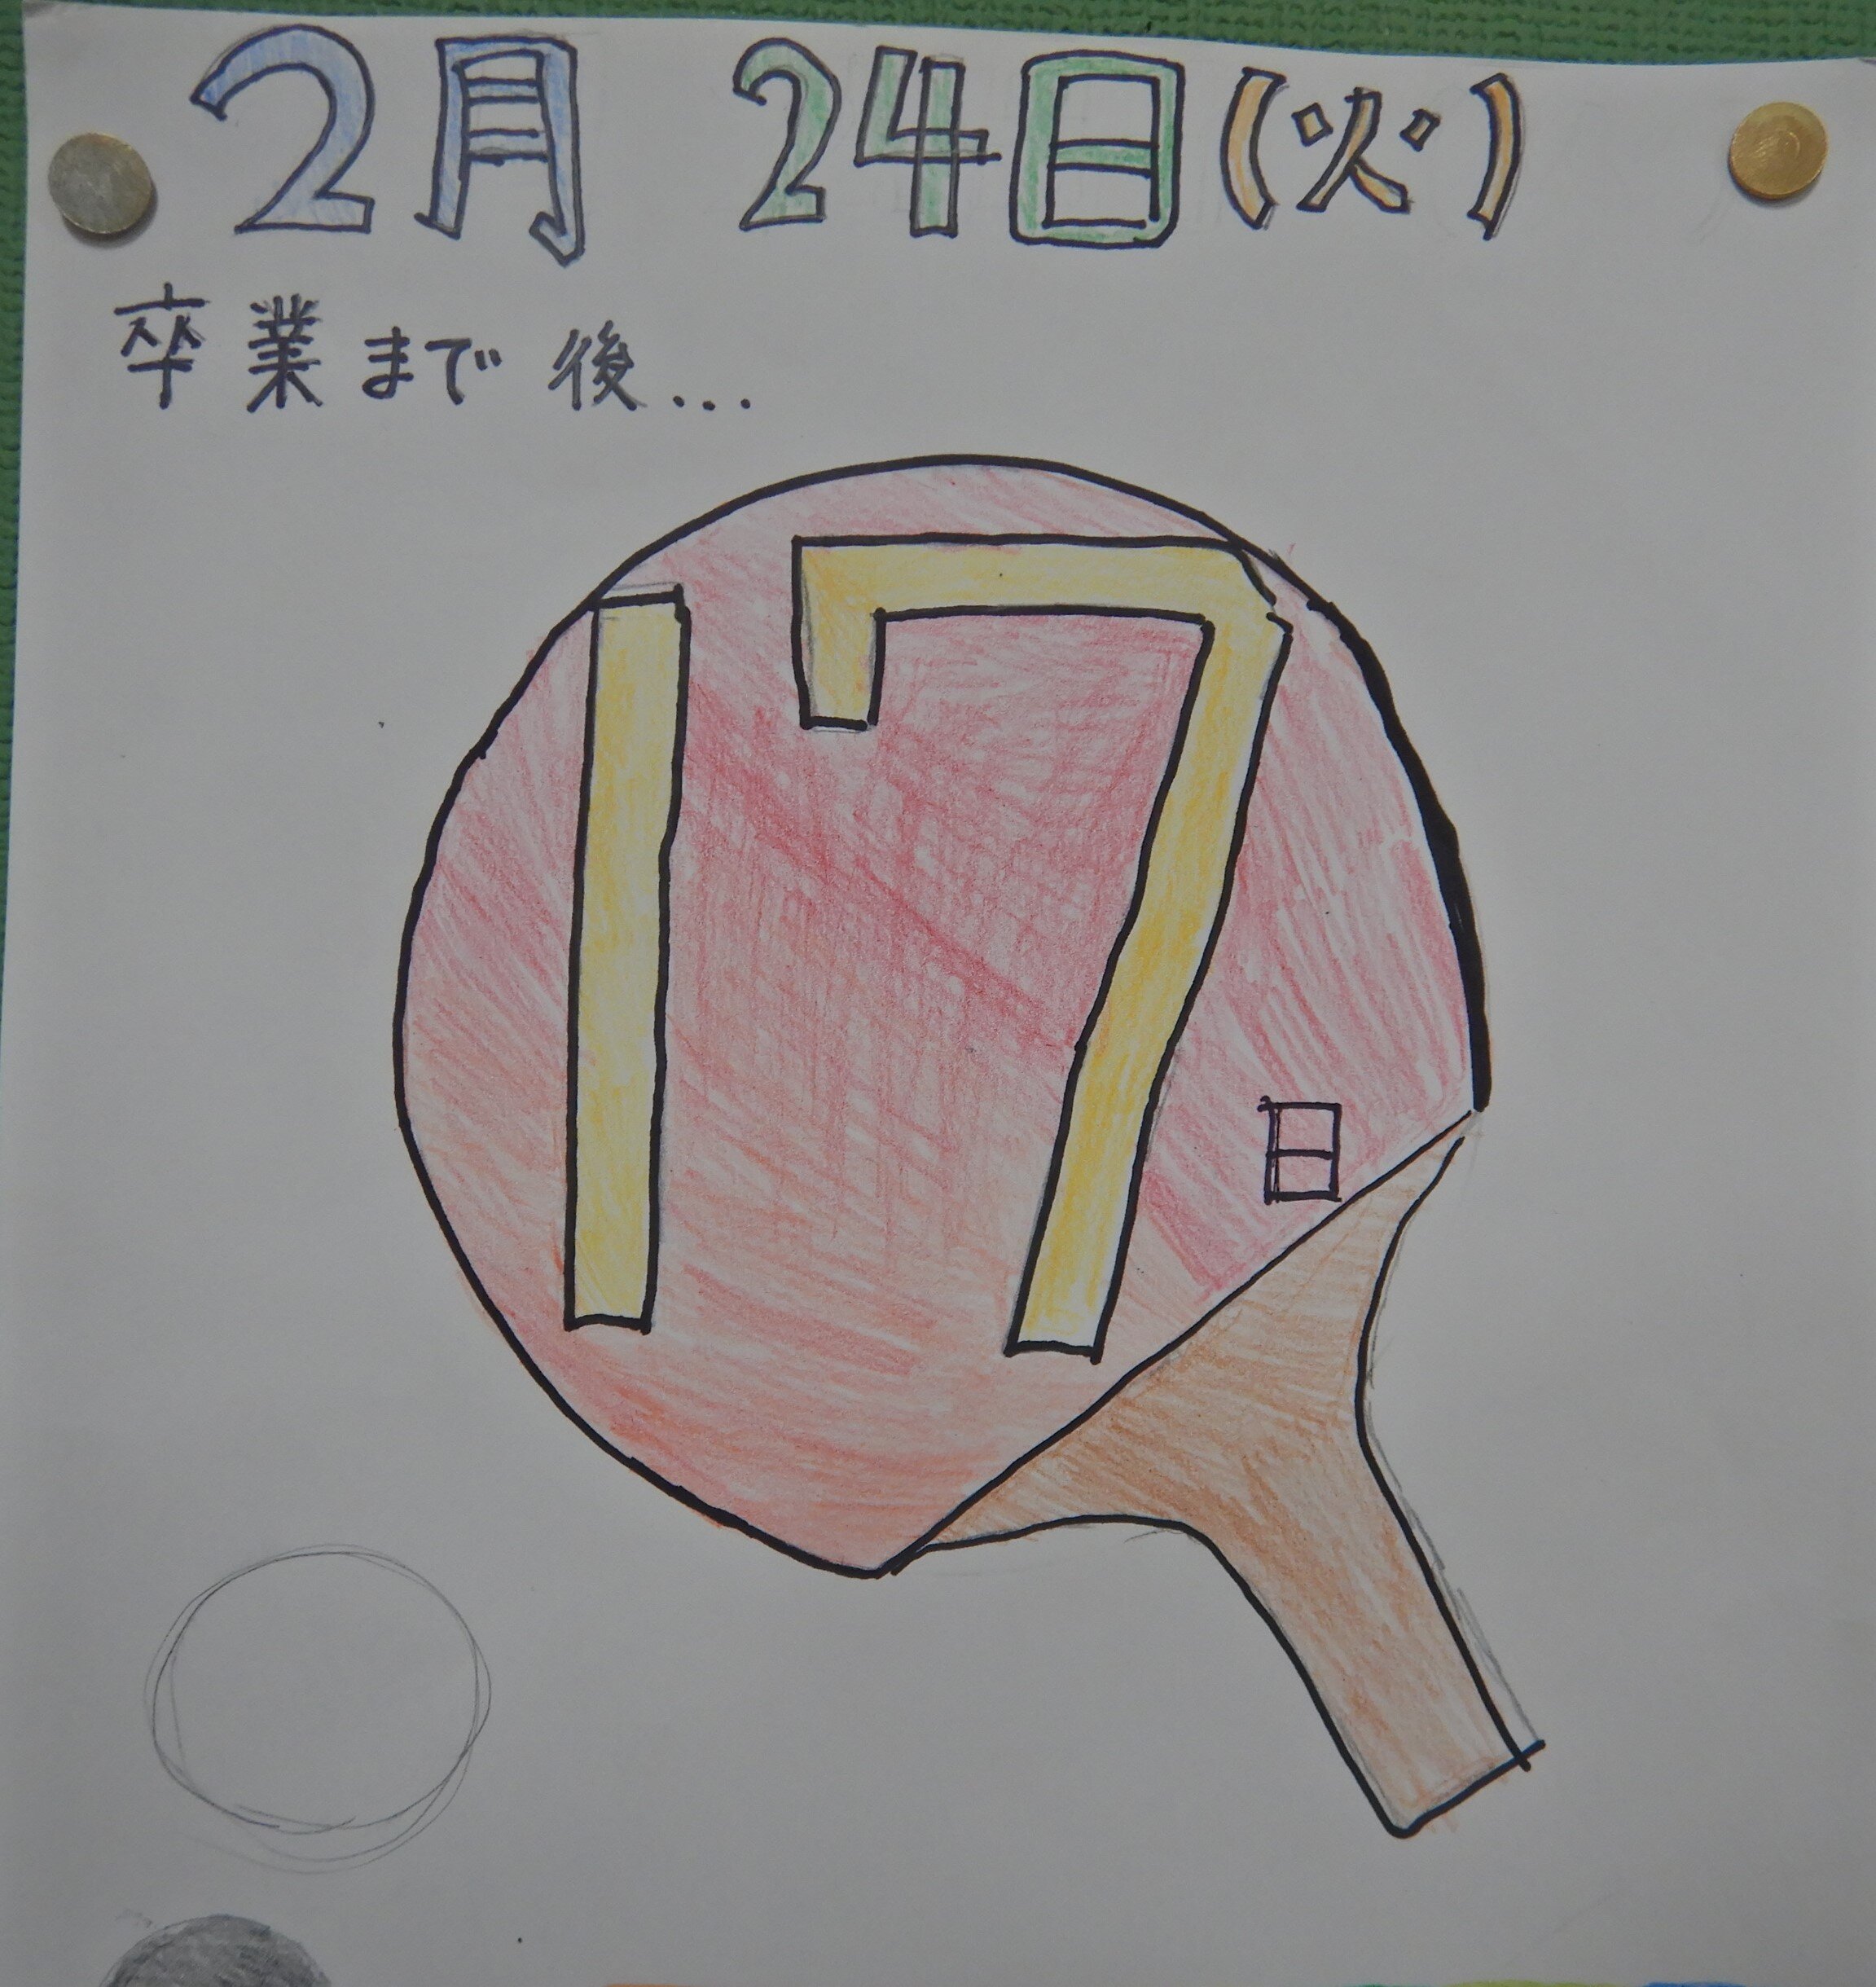 2月 24日(火)
卒業まで後...
17日